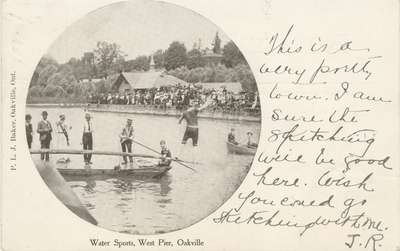 P. L. J. Baker, Oakville, Ont.
This is a
very pretty
town. I am
sure the
sketching
will be good
here. Wish
you could go
sketching with me.
J.R.
Water Sports, West Pier, Oakville